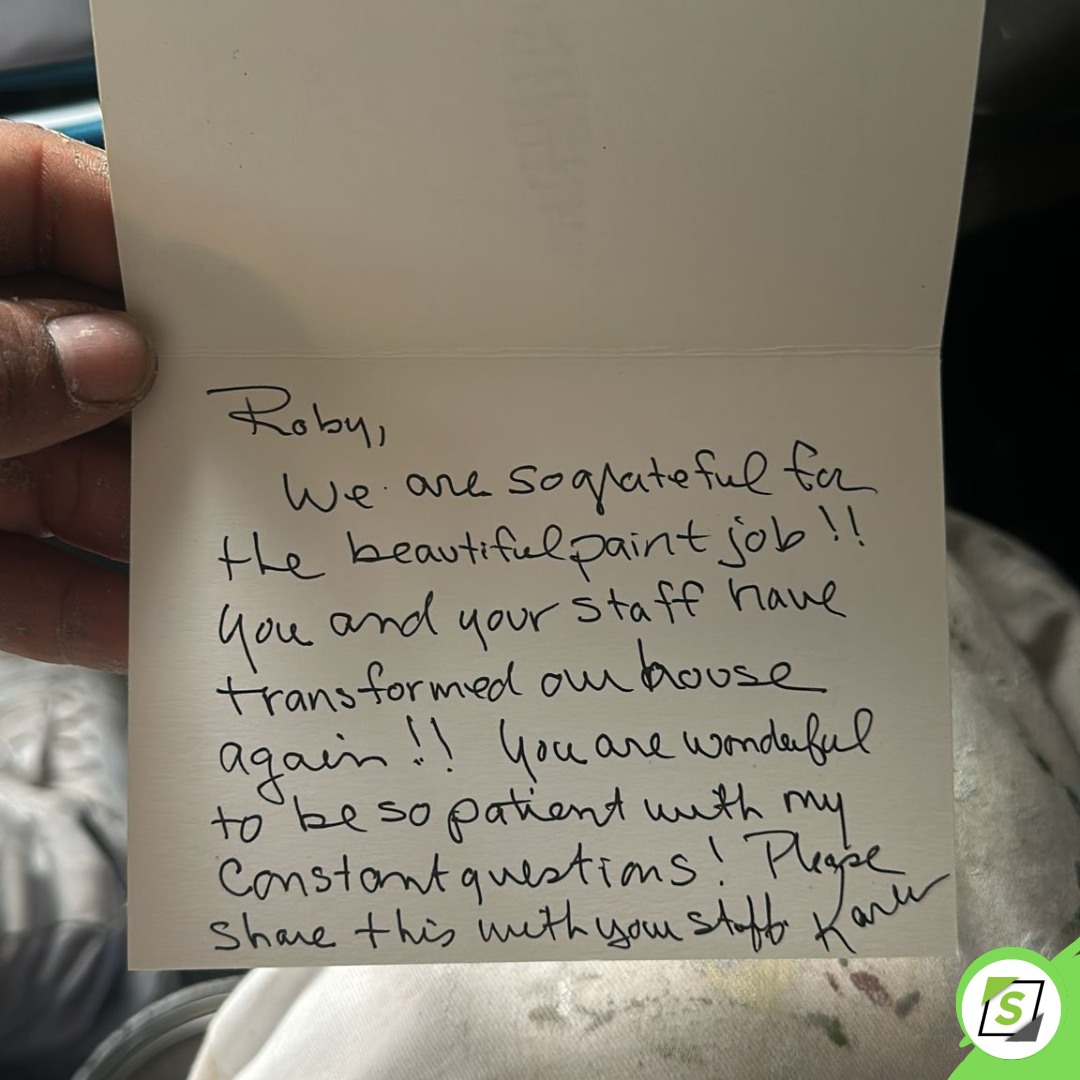 Roby,
We are so grateful for
the beautiful paint job!!
You and your staff have
transformed our house
again!! You are wonderful
to be so patient with my
constant questions! Please
share this with your staff. Karen
S